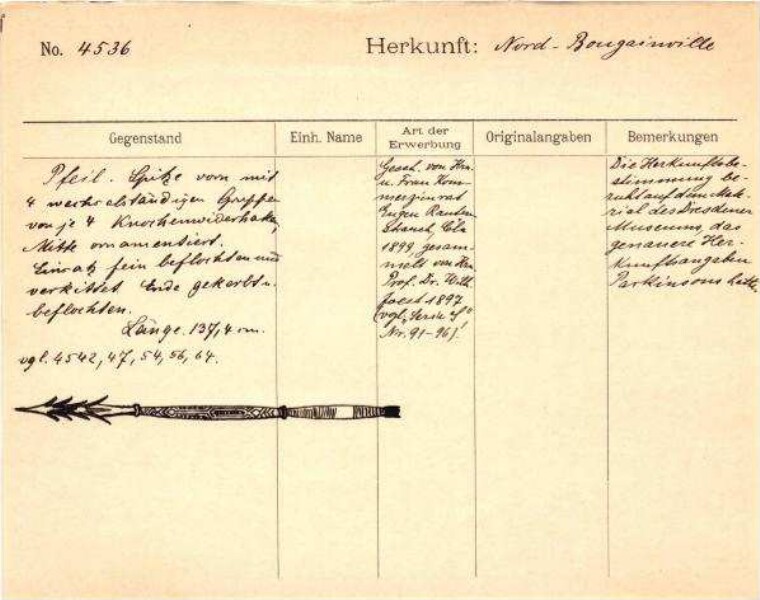 No. 4536
Herkunft: Nord-Bougainville
Gegenstand
Einh. Name
Art der Erwerbung
Originalangaben
Bemerkungen
Pfeil. Spitze vorn mit
4 wechselständigen Gruppen
von je 4 Knochenwiderhaken,
Mitte ornamentiert.
Einsatz fein beflochten und
verkittet Ende gekerbt u.
beflochten.
Länge. 137,4 cm.
vgl. 4542, 47, 54, 56, 64.
Gesch. von Hrn.
u. Frau Kom-
merzienrat
Eugen Rauten
strauch, Cöln
1899, gesam-
melt von Hrn.
Prof. Dr. Wilh.
Joest 1897
(vgl. Serie
Nr. 91-96)!
Die Herkunftsbe-
stimmung be-
ruht auf dem Mate-
rial des Dresdener
Museums, das
genauere Her-
kunftsangaben
Parkinsons hatte.